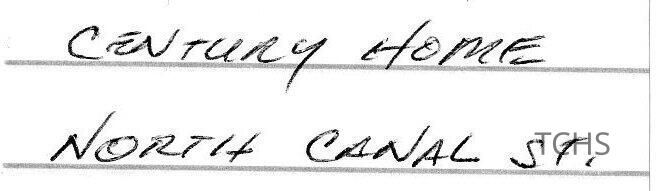 CENTURY HOME
NORTH CANAL ST.
TCHS